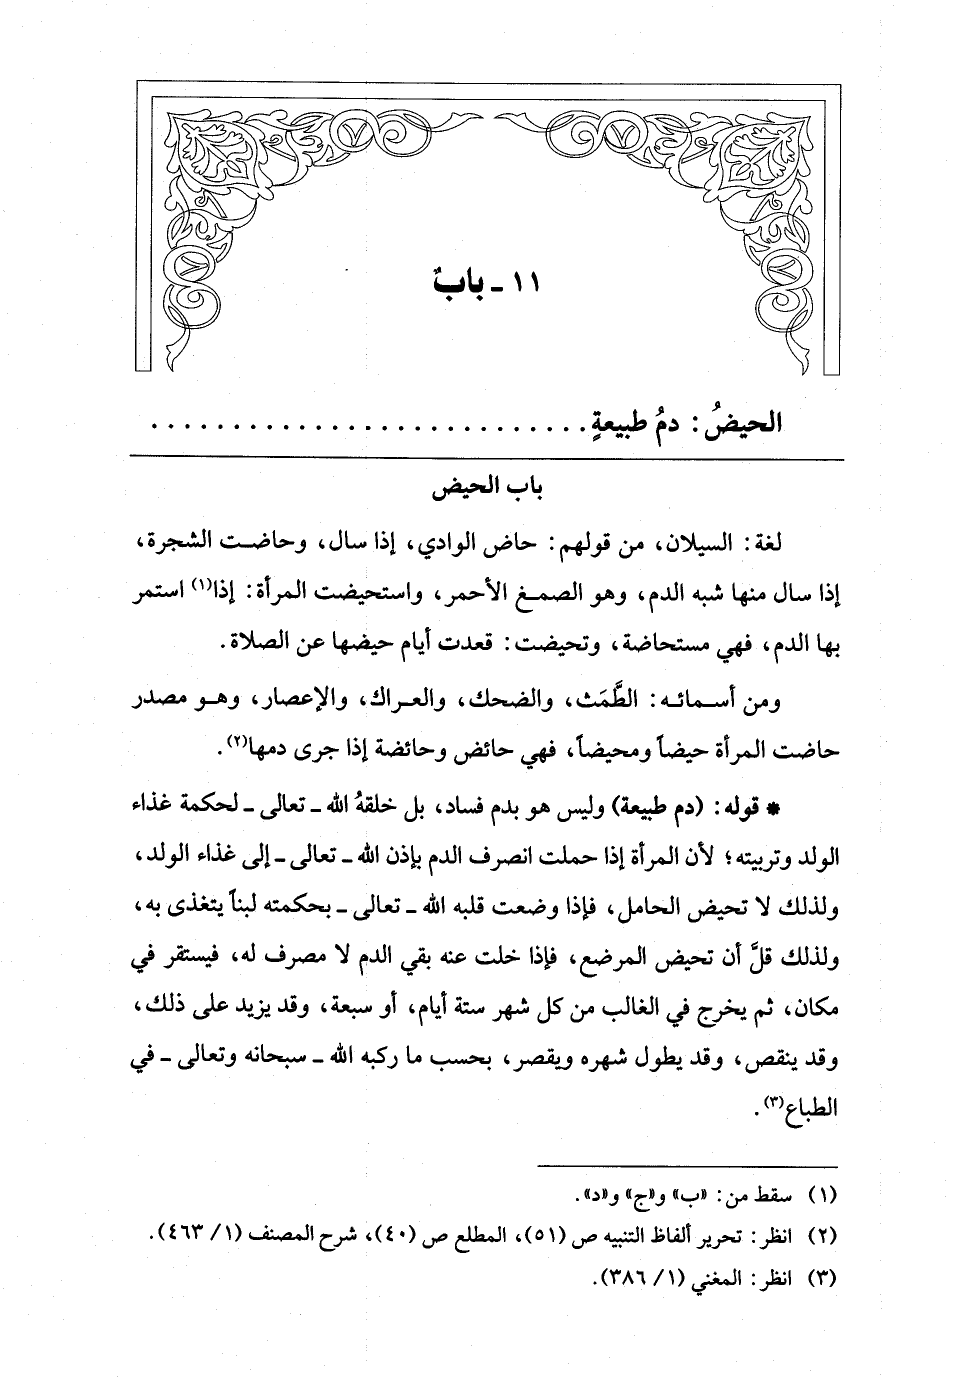 ١١ - بابٌ
الحيضُ: دمُ طبيعةٍ . . . . . . . . . . . . . . . . . . . . . . . . . .
باب الحيض
لغة: السيلان، من قولهم: حاض الوادي، إذا سال، وحاضت الشجرة،
إذا سال منها شبه الدم، وهو الصمغ الأحمر، واستحيضت المرأة: إذا(١) استمر
بها الدم، فهي مستحاضة، وتحيضت: قعدت أيام حيضها عن الصلاة.
ومن أسمائه: الطَّمَث، والضحك، والعراك، والإعصار، وهو مصدر
حاضت المرأة حيضاً ومحيضاً، فهي حائض وحائضة إذا جرى دمها(٢).
* قوله: (دم طبيعة) وليس هو بدم فساد، بل خلقهُ الله ـ تعالى ـ لحكمة غذاء
الولد وتربيته؛ لأن المرأة إذا حملت انصرف الدم بإذن الله ـ تعالى ـ إلى غذاء الولد،
ولذلك لا تحيض الحامل، فإذا وضعت قلبه الله ـ تعالى ـ بحكمته لبناً يتغذى به،
ولذلك قلَّ أن تحيض المرضع، فإذا خلت عنه بقي الدم لا مصرف له، فيستقر في
مكان، ثم يخرج في الغالب من كل شهر ستة أيام، أو سبعة، وقد يزيد على ذلك،
وقد ينقص، وقد يطول شهره ويقصر، بحسب ما ركبه الله ـ سبحانه وتعالى ـ في
الطباع(٣).
(١) سقط من: «ب» و«ج» و«د».
(٢) انظر: تحرير ألفاظ التنبيه ص (٥١)، المطلع ص (٤٠)، شرح المصنف (١/ ٤٦٣).
(٣) انظر: المغني (١/ ٣٨٦).